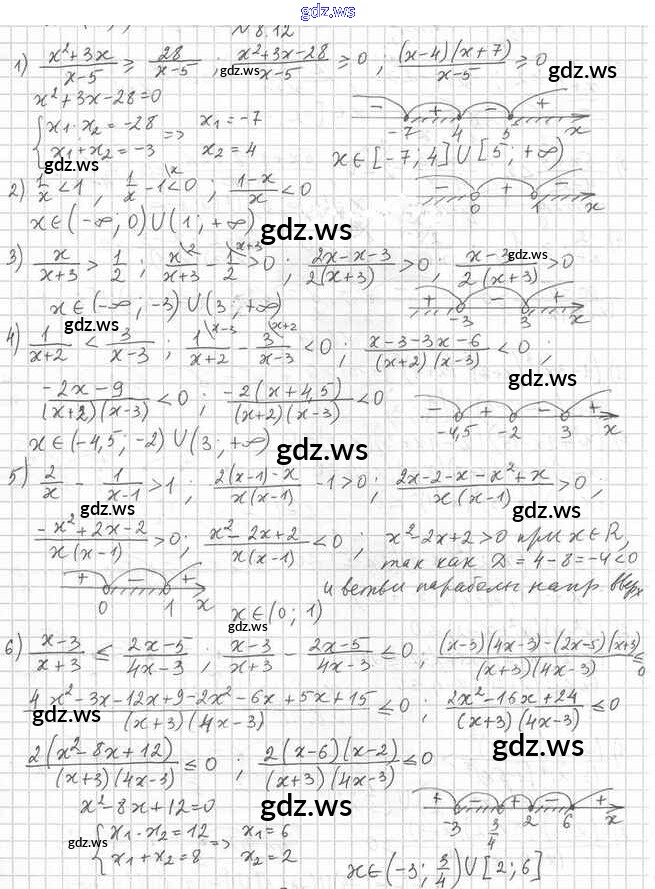 gdz.ws
N 8.12
1) (x²+3x)/(x-5) ≥ 28/(x-5) ; (x²+3x-28)/(x-5) ≥ 0 ; (x-4)(x+7)/(x-5) ≥ 0
gdz.ws
gdz.ws
x²+3x-28=0
{ x₁·x₂ = -28 => x₁ = -7
x₁+x₂ = -3 x₂ = 4
- + - +
-7 4 5 x
gdz.ws
x∈[-7; 4] ∪ [5; +∞)
2) 1/x < 1 , 1/x - 1\x < 0 ; (1-x)/x < 0
- + -
0 1 x
x∈(-∞; 0) ∪ (1; +∞)
gdz.ws
3) x/(x+3) > 1/2 ; x\2/(x+3) - 1\x+3/2 > 0 ; (2x-x-3)/(2(x+3)) > 0 ; (x-3)/(2(x+3)) > 0
gdz.ws
x∈(-∞, -3) ∪ (3; +∞)
+ - +
-3 3 x
gdz.ws
4) 1/(x+2) < 3/(x-3) ; 1\x-3/(x+2) - 3\x+2/(x-3) < 0 ; (x-3-3x-6)/((x+2)(x-3)) < 0 ;
gdz.ws
(-2x-9)/((x+2)(x-3)) < 0 ; -2(x+4,5)/((x+2)(x-3)) < 0
- + - +
-4,5 -2 3 x
x∈(-4,5; -2) ∪ (3; +∞)
gdz.ws
5) 2/x - 1/(x-1) > 1 ; (2(x-1)-x)/(x(x-1)) - 1 > 0 ; (2x-2-x-x²+x)/(x(x-1)) > 0 ;
gdz.ws
gdz.ws
(-x²+2x-2)/(x(x-1)) > 0 ; (x²-2x+2)/(x(x-1)) < 0 ; x²-2x+2>0 при x∈R,
так как D = 4-8=-4<0
и ветви параболы напр вверх
+ - +
0 1 x
x∈(0; 1)
gdz.ws
6) (x-3)/(x+3) ≤ (2x-5)/(4x-3) ; (x-3)/(x+3) - (2x-5)/(4x-3) ≤ 0 ; ((x-3)(4x-3)-(2x-5)(x+3))/((x+3)(4x-3)) ≤ 0
(4x²-3x-12x+9-2x²-6x+5x+15)/((x+3)(4x-3)) ≤ 0 ; (2x²-16x+24)/((x+3)(4x-3)) ≤ 0
gdz.ws
gdz.ws
2(x²-8x+12)/((x+3)(4x-3)) ≤ 0 ; 2(x-6)(x-2)/((x+3)(4x-3)) ≤ 0
x²-8x+12=0
gdz.ws
{ x₁·x₂ = 12 => x₁ = 6
x₁+x₂ = 8 x₂ = 2
gdz.ws
+ - + - +
-3 3/4 2 6 x
x∈(-3; 3/4) ∪ [2; 6]